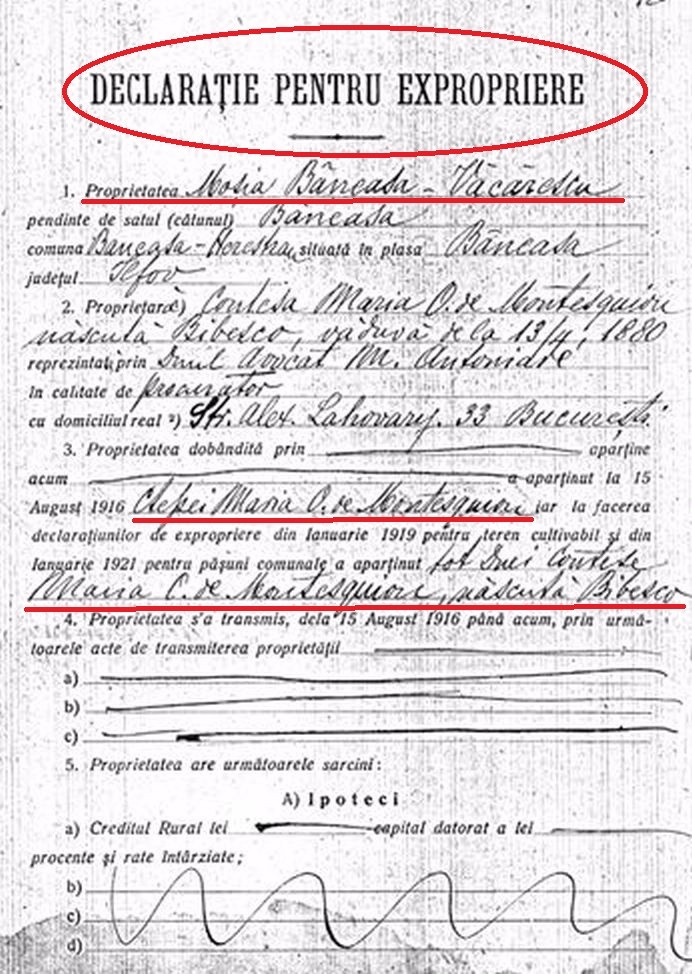 DECLARAŢIE PENTRU EXPROPRIERE
1. Proprietatea Moșia Băneasa - Văcărescu
pendinte de satul (cătunul) Băneasa
comuna Baneasa-Herestrau situată în plasa Băneasa
județul Ilfov
2. Proprietara¹) Contesa Maria O. de Montesquiou
născută Bibescu, văduvă de la 13/4, 1880
reprezintat prin Dnul Avocat M. Antoniade
în calitate de procurator
cu domiciliul real ²) Str. Alex. Lahovary. 33 București
3. Proprietatea dobândită prin aparține
acum a aparținut la 15
August 1916 Ctesei Maria O. de Montesquiou iar la facerea
declarațiunilor de expropriere din Ianuarie 1919 pentru teren cultivabil și din
Ianuarie 1921 pentru pășuni comunale a aparținut tot Dnei Contese
Maria C. de Montesquiou, născută Bibescu
4. Proprietatea s'a transmis, dela 15 August 1916 până acum, prin urmă-
toarele acte de transmiterea proprietății
a)
b)
c)
5. Proprietatea are următoarele sarcini:
A) Ipoteci
a) Creditul Rural lei capital datorat a lei
procente și rate întârziate;
b)
c)
d)